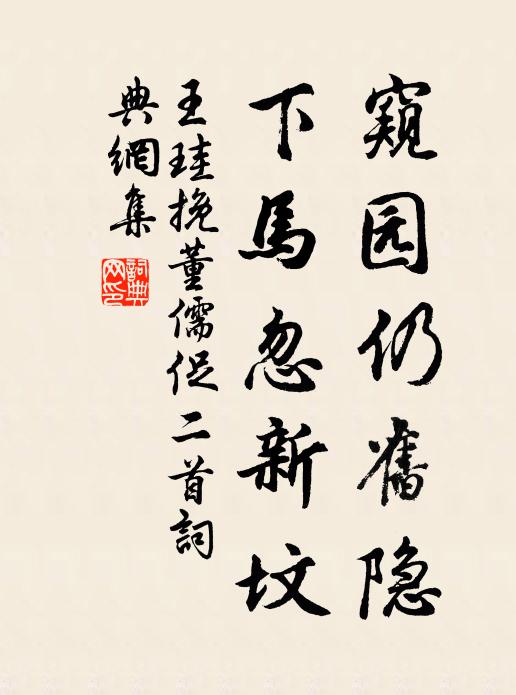 窥园仍舊隐
下馬忽新坟
王珪挽董儒促二首詞
典網集
詞典网印